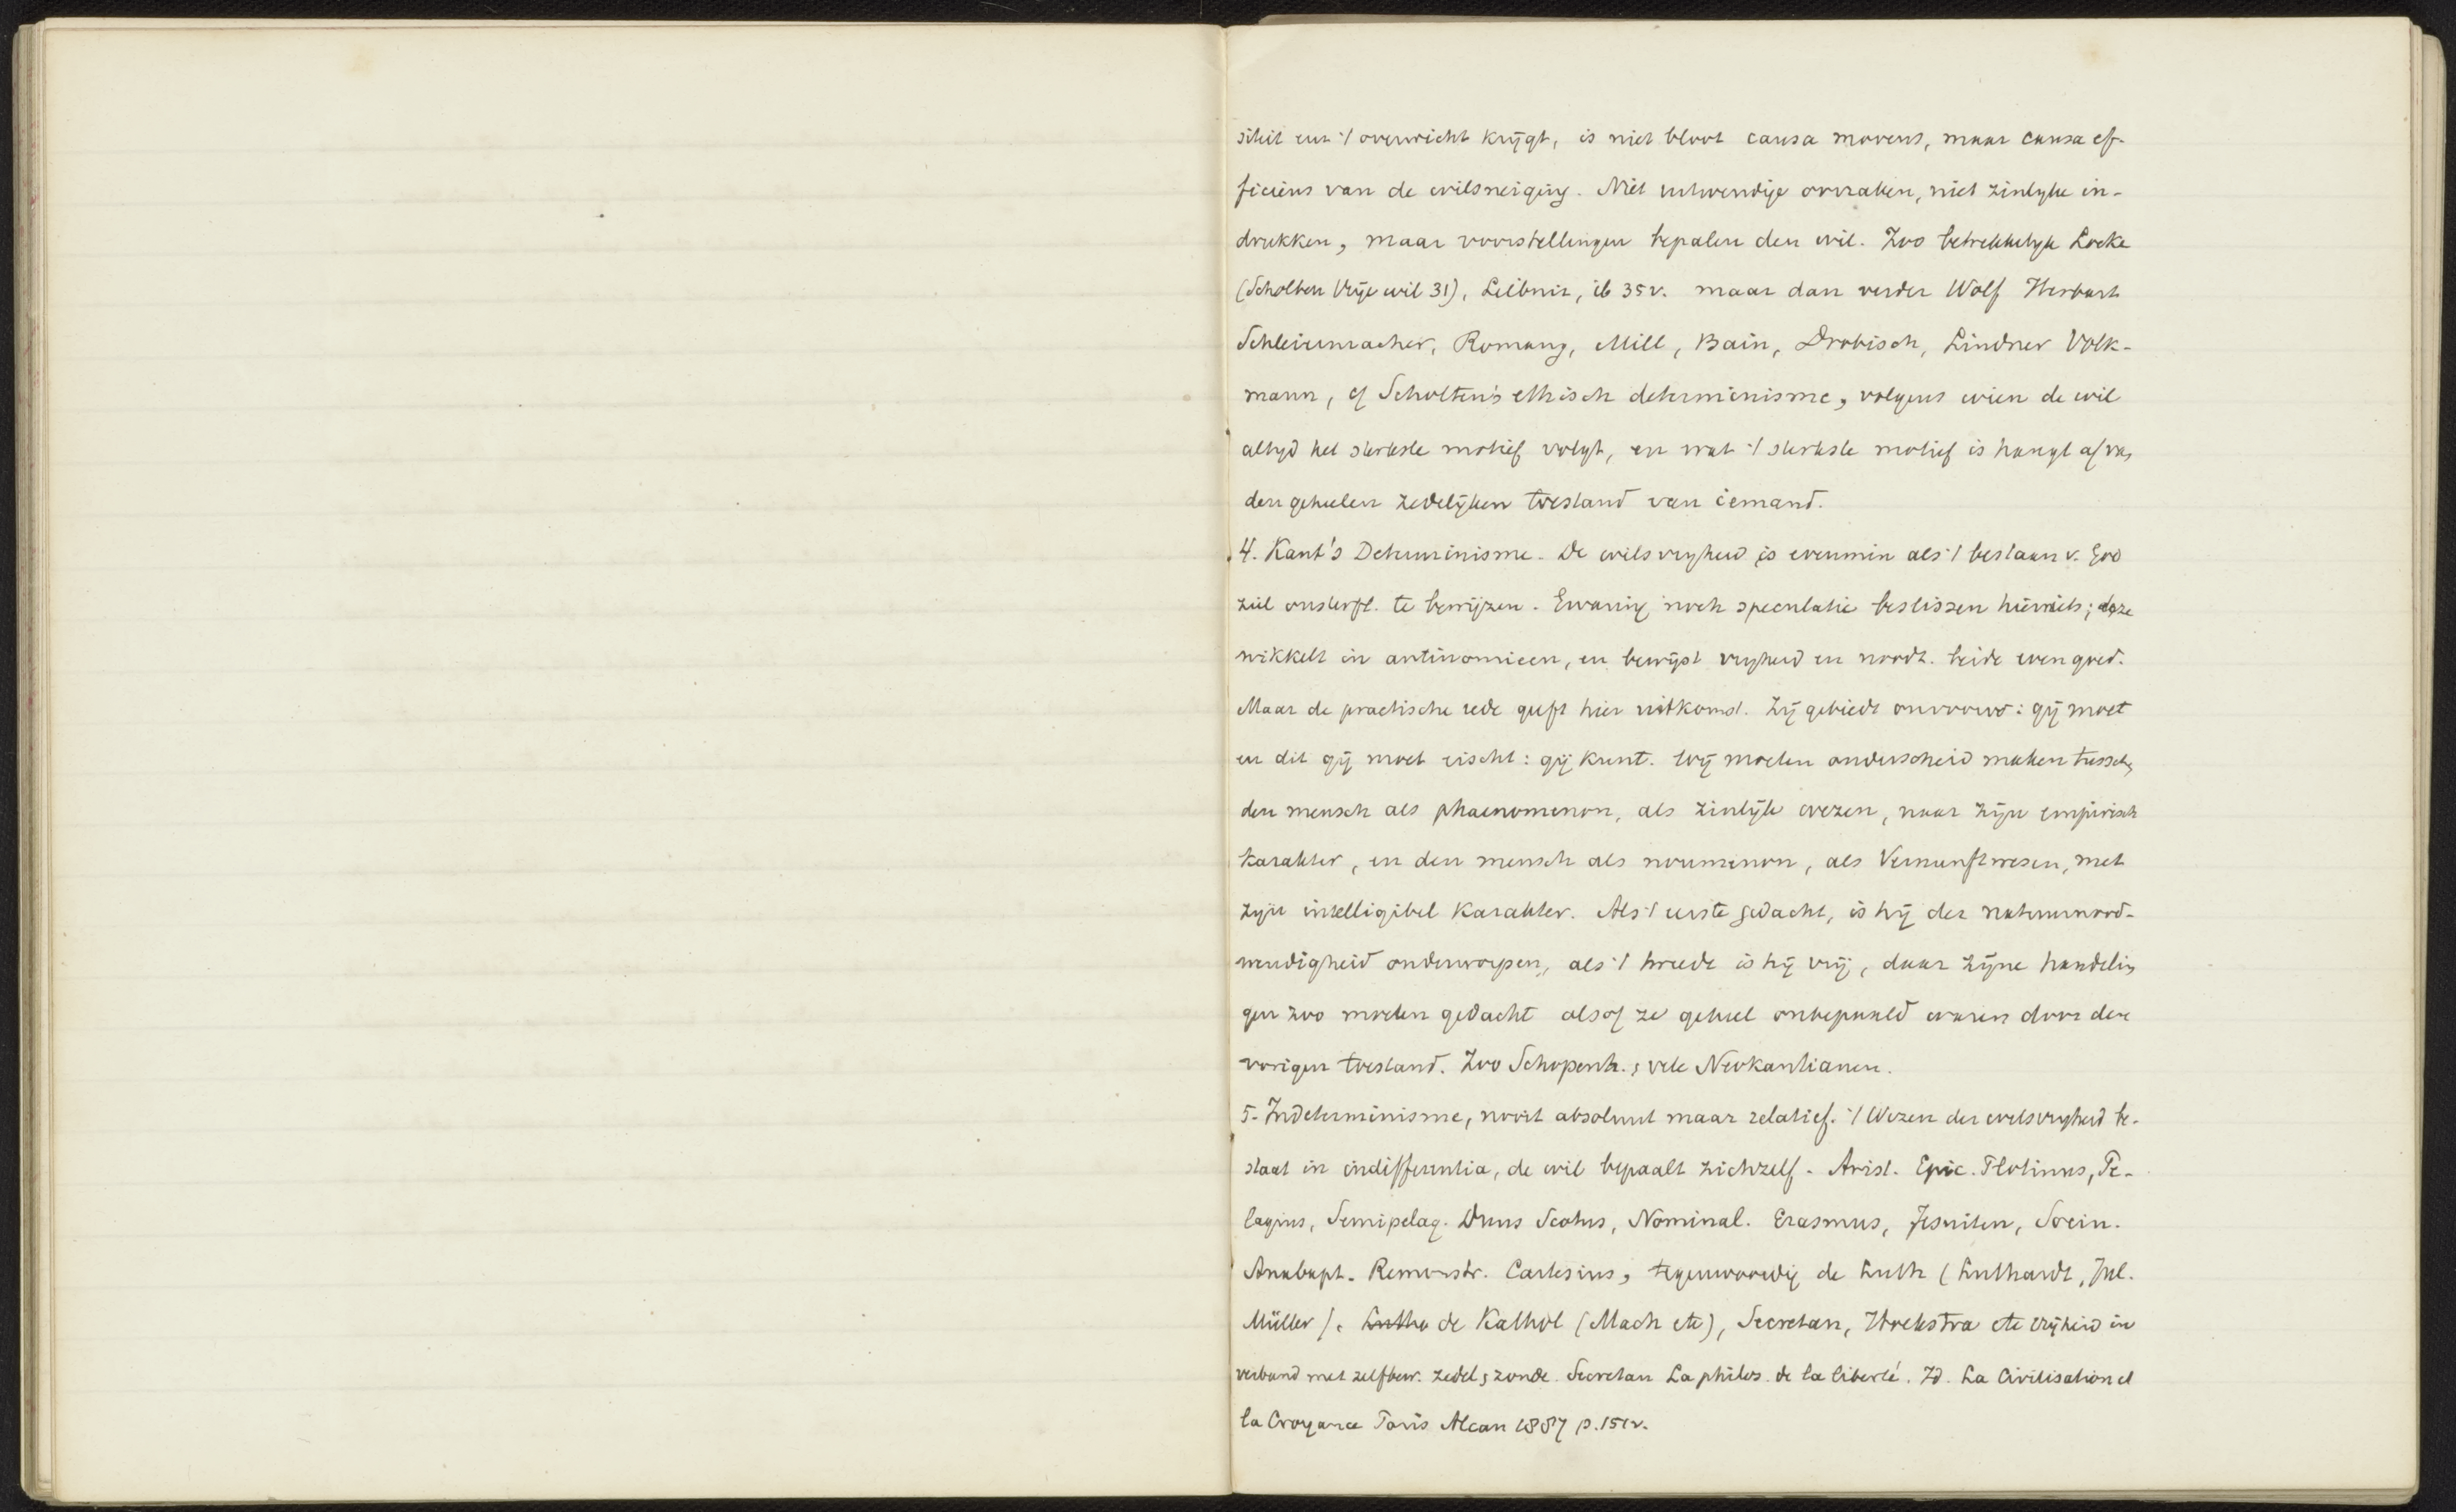 siteit eur 't overwicht krijgt, is niet bloot causa movens, maar causa ef-
ficiens van de wilsneiging. Niet uitwendige oorzaken, niet zinlyke in-
drukken, maar voorstellingen bepalen den wil. Zoo betrekkelyk Locke
(Scholten Vrije wil 31), Leibniz, ib 35v. maar dan verder Wolf Herbart
Schleiermacher, Romang, Mill, Bain, Drobisch, Lindner Volk-
mann, cf Scholten's ethisch determinisme, volgens wien de wil
altyd het sterkste motief volgt, en wat 't sterkste motief is hangt af van
den geheelen zedelijken toestand van iemand.
4. Kant's Determinisme. De wilsvryheid is evenmin als 't bestaan v. God
ziel onsterfl. te bewijzen. Ervaring noch speculatie beslissen hier iets; deze
wikkelt in antinomieen, en bewijst vryheid en noodz. beide even goed.
Maar de practische rede geeft hier uitkomst. Zij gebiedt onvoorw: gij moet
en dit gij moet eischt: gij kunt. Wij moeten onderscheid maken tusschen
den mensch als phaenomenon, als zinlijk wezen, naar zijn empirisch
karakter, en den mensch als noumenon, als Vernunftwesen, met
zyn intelligibel karakter. Als 't eerste gedacht, is hij der natuurnood-
wendigheid onderworpen, als 't tweede is hij vrij, daar zijne handelin
gen zoo moeten gedacht alsof ze geheel onbepaald waren door den
vorigen toestand. Zoo Schopenh. ; vele Neokantianen.
5. Indeterminisme, nooit absoluut maar relatief. 't Wezen der wilsvryheid be-
staat in indifferentia, de wil bepaalt zichzelf. Arist. Epic. Plotinus, Pe-
lagius, Semipelag. Duns Scotus, Nominal. Erasmus, Jesuiten, Socin.
Anabapt. Remonstr. Cartesius, tegenwoordig de Luth (Luthardt, Jul.
Müller), Luthe de Kathol (Mach etc), Secretan, Hoekstra etc vrijheid in
verband met zelfbew. zedel; zonde. Secretan La philos. de la liberté. Id. La Civilisation et
la Croyance Paris Alcan 1887 p. 151v.